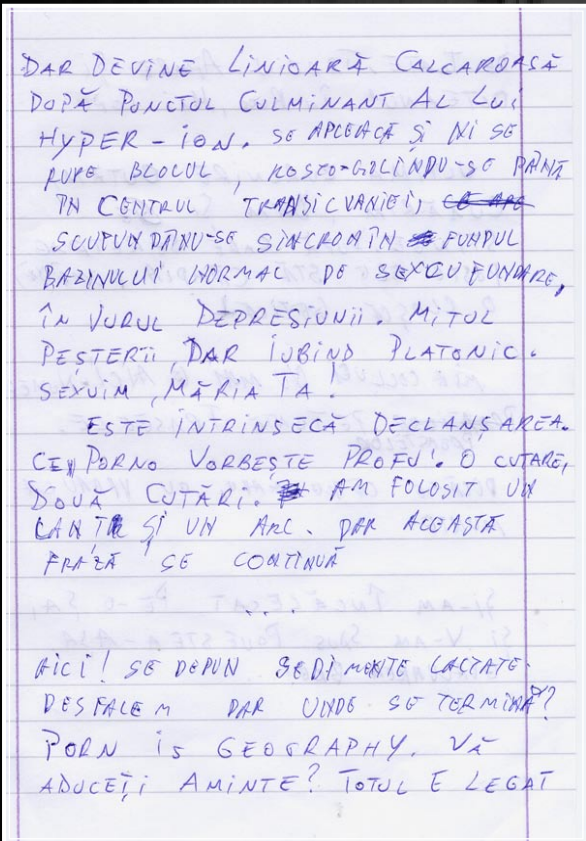 DAR DEVINE LINIOARĂ CALCAROASĂ
DOPĂ PUNCTUL CULMINANT AL LUI
HYPER-ION. SE APLEACĂ ȘI NI SE
RUPE BLOCUL, ROSTO-GOLINDU-SE PÂNĂ
ÎN CENTRUL TRANSILVANIEI, CE ARE
SCUFUNDÂNU-SE SINCRON ÎN FUNDUL
BAZINULUI NORMAL DE SEXCUFUNDARE,
ÎN JURUL DEPRESIUNII. MITUL
PEȘTERII, DAR IUBIND PLATONIC.
SEXUIM, MĂRIA TA!
ESTE INTRINSECĂ DECLANȘAREA.
CE PORNO VORBEȘTE PROFU'. O CUTARE,
DOUĂ CUTĂRI. AM FOLOSIT UN
LANȚ ȘI UN ARC. DAR ACEASTĂ
FRAZĂ SE CONTINUĂ
...
AICI! SE DEPUN SEDIMENTE LACTATE.
DESFACEM DAR UNDE SE TERMINĂ?
PORN IS GEOGRAPHY. VĂ
ADUCEȚI AMINTE? TOTUL E LEGAT